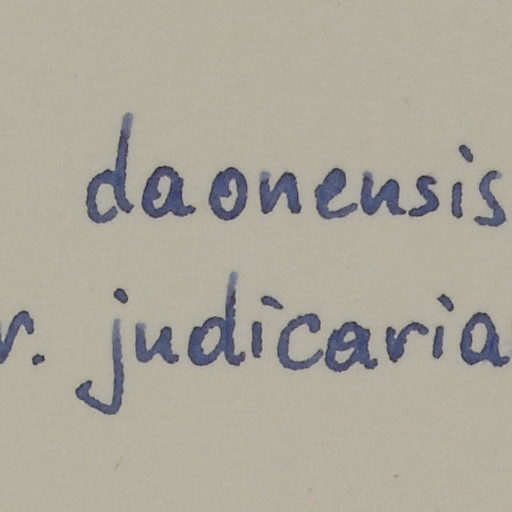 daonensis
r. judicaria